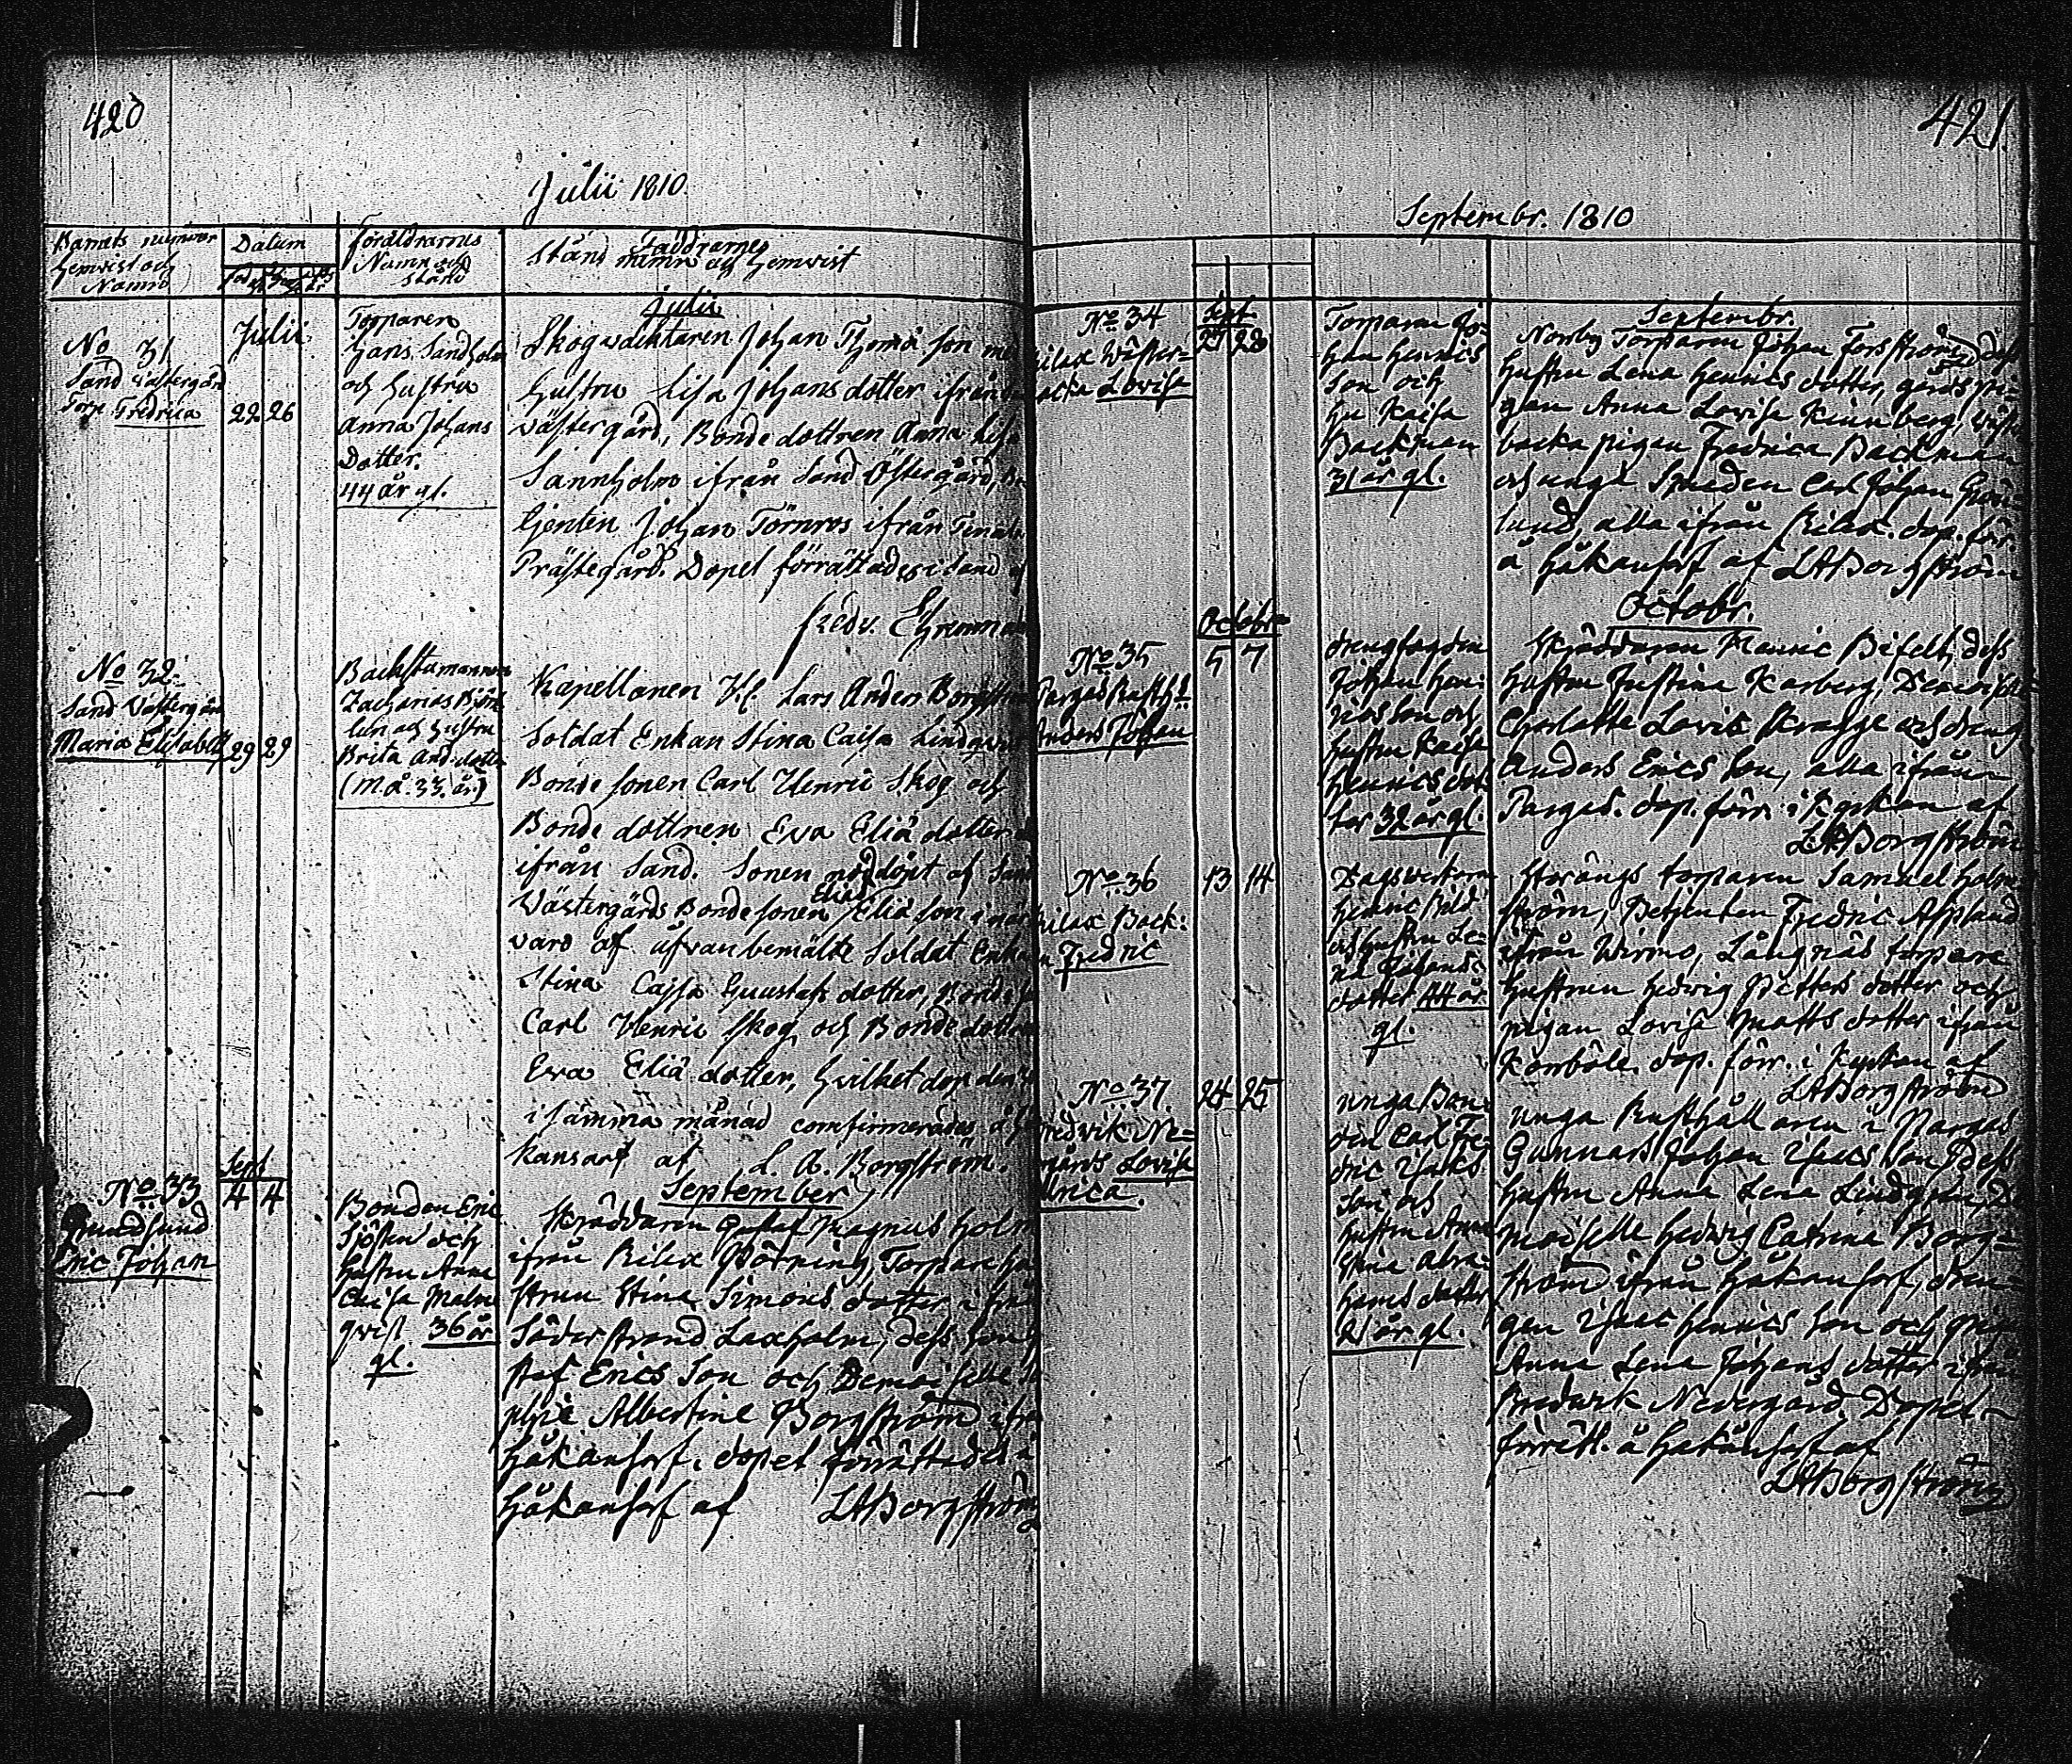 420
Julii 1810
Barnets nummer
hemvist och
Namn
Datum
Föräldrarnes
Namn och
stånd
Faddrarnes
Stånd namn och hemvist
No 31
Sand Västergård
Torp Fredrica
Julii
22 26
Torparen
Hans Sandholm
och hustru
Anna Johans
Dotter.
44 år gl.
Julii
Skogvacktaren Johan Thomä son
hustru Lisa Johans dotter ifrån
Västergård, Bonde dottren Anna Lisa
Sannholm ifrån Sand Östergård,
tjenten Johan Törnros ifrån
Prästegård. Dopet förrättades i Sand af
Fredr. Ehrenman
No 32.
Sand Västergård
Maria Elisabeth
29 29
Backstumannen
Zacharias Björk
lin och hustru
Brita And. dotter
(M. å. 33. år)
Kapellanen V. C. Lars Anders Borgström
Soldat Enkan Stina Caisa Lindqvist
Bonde sonen Carl Henric Skog och
Bonde dottren Eva Eliä dotter
ifrån Sand. Sonen nöddöpt af Sand
Västergårds Bondesonen Elias Eliä son i när
varo af åfvanbemälte Soldat Enkan
Stina Cajsa Gustafs dotter, Bonde
Carl Henric Skog, och Bonde dottren
Eva Eliä dotter, hvilket dop den
i samma månad comfirmerades å Hå
kansarf af L. A. Borgström.
No 33
Grundsund
Eric Johan
Sept
4 4
Bonden Eric
Sjösten och
hustru Anna
Caisa Malm
qvist 36 år
gl.
September
Skräddaren Gustaf Magnus Holm
ifrån Rilax Störning, Torpare hu
strun Stina Simons dotter ifrån
Söderstrand Laxholm, dess son
staf Erics Son och Demoiselle So
phie Albertine Borgström ifrån
Håkansarf. dopet förrättades i
Håkansarf af LABorgström
421.
Septembr. 1810
No 34
Rilax Wäster-
backa Lovisa
Sept
27 28
Torparen Jo-
han Henrics
Son och
hu Kaisa
Backman
31 år gl.
Septembr.
Norrby Torparen Johan Forsström, dess
hustru Lena Henrics dotter, gårds pi-
gan Anna Lovisa Kinnberg, Wäster
backa pigan Fredrica Backman
och unga Smeden Carl Johan Grön-
lund, alla ifrån Rilax. dop. förr.
å Håkansarf af LABorgström
No 35
Pargas Rusth:
Anders Johan
Octobr
5 7
drengfogden
Johan Hen-
rics son och
hustru Kaisa
Henrics dot-
ter 32 år gl.
Octobr.
Skräddaren Henric Bifelt, dess
hustru Justina Karberg, Demoiselle
Charlotta Lovis Skragge och dreng
Anders Erics Son, alla ifrån
Pargas. dop. förr. i Kyrkan af
LABorgström
No 36
Rilax Back:
Fredric
13 14
Dagsverkaren
Henric Rild
och hustru Le-
na Johans
dotter 44 år
gl.
Storängs torparen Samuel Holm
ström, Betjenten Fredric Asplund
ifrån Wirmo, Långnäs torpare
hustrun Hedvig Petters dotter och
pigan Lovisa Matts dotter ifrån
Korsböle. dop. förr. i Kyrkan af
LABorgström
No 37.
Bredvik Ne-
dergårds Lovisa
Ulrica.
24 25
unga Bon-
den Carl Fre-
dric Isaks
Son och
hustru Anna
Stina Abra-
hams dotter
21 år gl.
unga Rusthållaren i Pargas
Gunnars Johan Isacs Son, dess
hustru Anna Lena Lindgren, De
moiselle Hedvig Catrina Borg-
ström ifrån Håkansarf, dren-
gen Isac Henrics Son och pigan
Anna Lena Johans dotter ifrån
Bredvik Nedergård Dopet
förrätt. å Håkansarf af
LABorgström